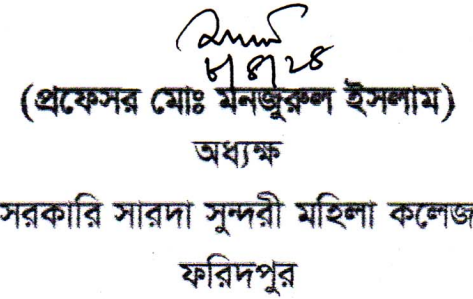 ৮/৪/২৪
(প্রফেসর মোঃ মনজুরুল ইসলাম)
অধ্যক্ষ
সরকারি সারদা সুন্দরী মহিলা কলেজ
ফরিদপুর